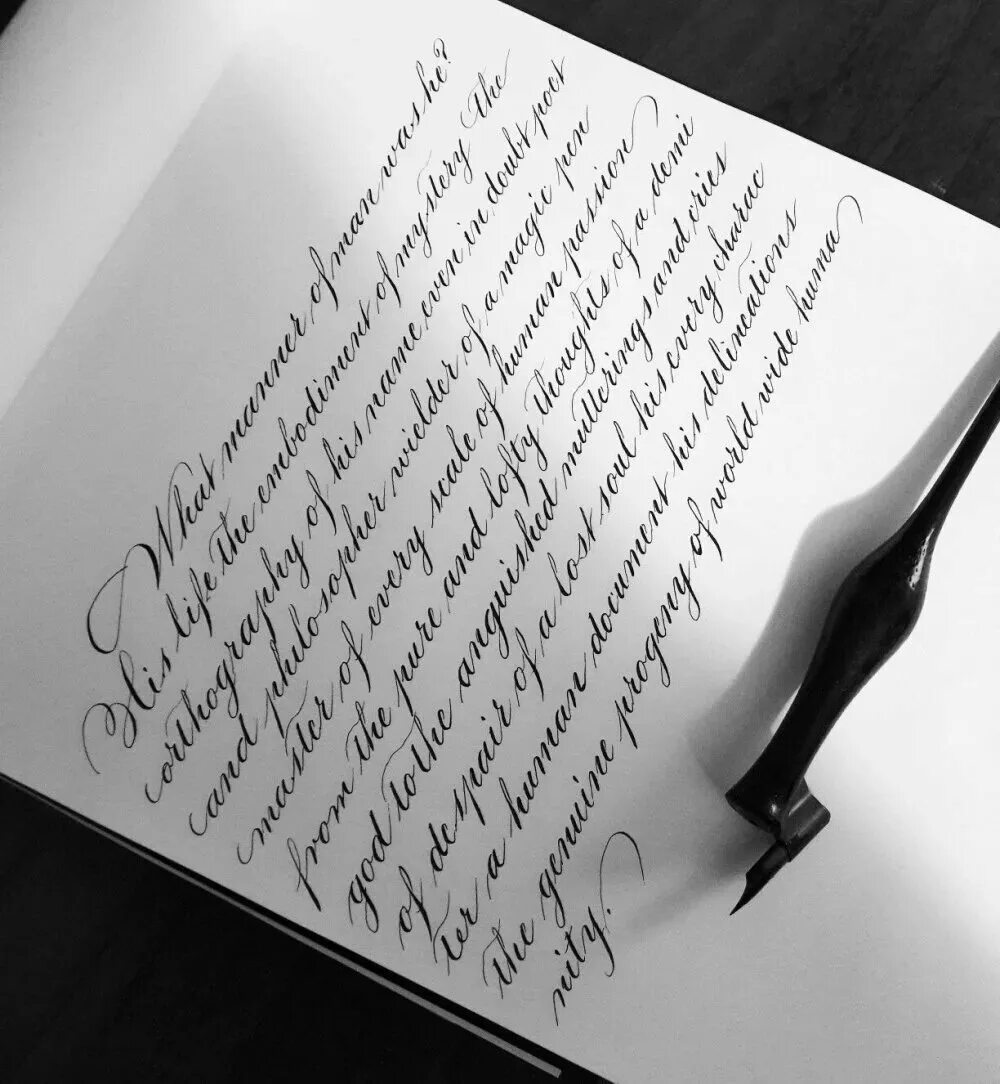 What manner of man was he?
His life the embodiment of mystery the
orthography of his name even in doubt poet
and philosopher wielder of a magic pen
master of every scale of human passion
from the pure and lofty thoughts of a demi
god to the anguished mutterings and cries
of despair of a lost soul his every charac
ter a human document his delineations
the genuine progeny of world wide huma
nity.